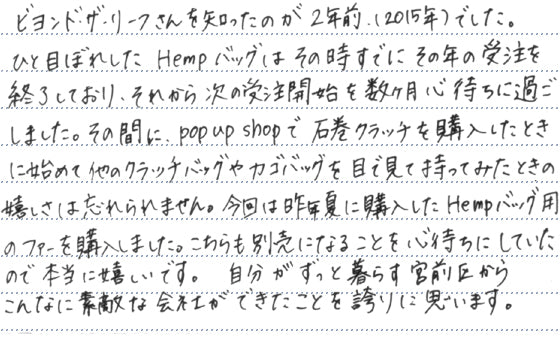 ビヨンド・ザ・リーフさんを知ったのが2年前、(2015年)でした。
ひと目ぼれしたHempバッグはその時すでにその年の受注を
終了しており、それから次の受注開始を数ヶ月心待ちに過ご
しました。その間に、pop up shopで石巻クラッチを購入したとき
に始めて他のクラッチバッグやカゴバッグを目で見て持ってみたときの
嬉しさは忘れられません。今回は昨年夏に購入したHempバッグ用
のファーを購入しました。こちらも別売になることを心待ちにしていた
ので本当に嬉しいです。 自分がずっと暮らす宮前区から
こんなに素敵な会社ができたことを誇りに思います。